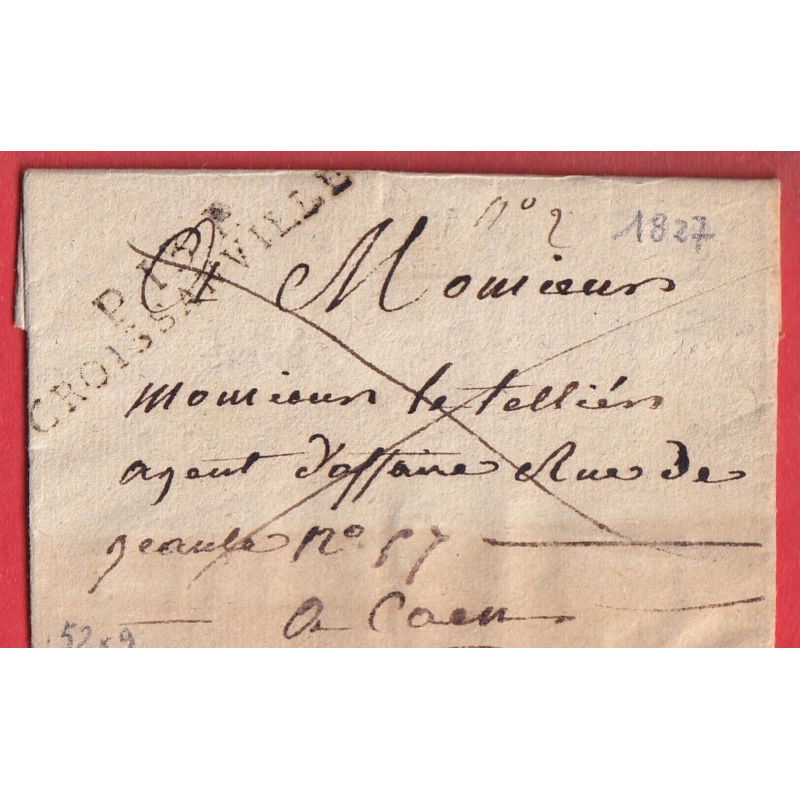 P.13.P.
CROISSANVILLE
no 2
1827
A Monsieur
monsieur le telliér
agent d'affaire Rue de
geaule No 57
a Caen
52 x 9